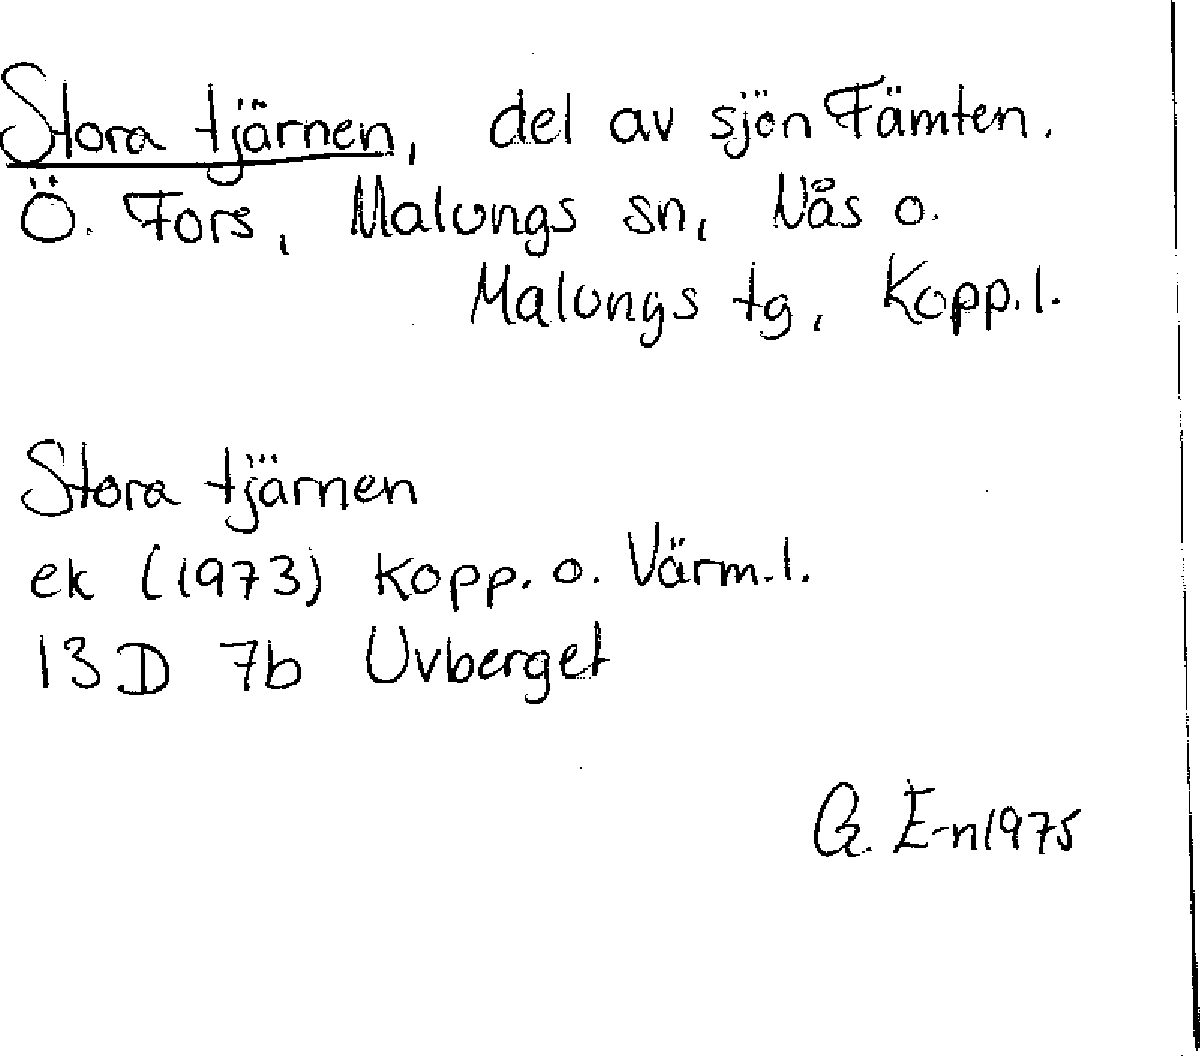 Stora tjärnen, del av sjön Fämten.
Ö. Fors, Malungs sn, Nås o.
Malungs tg, Kopp.l.
Stora tjärnen
ek (1973) Kopp. o. Värm.l.
13D 7b Uvberget
G. E-n 1975